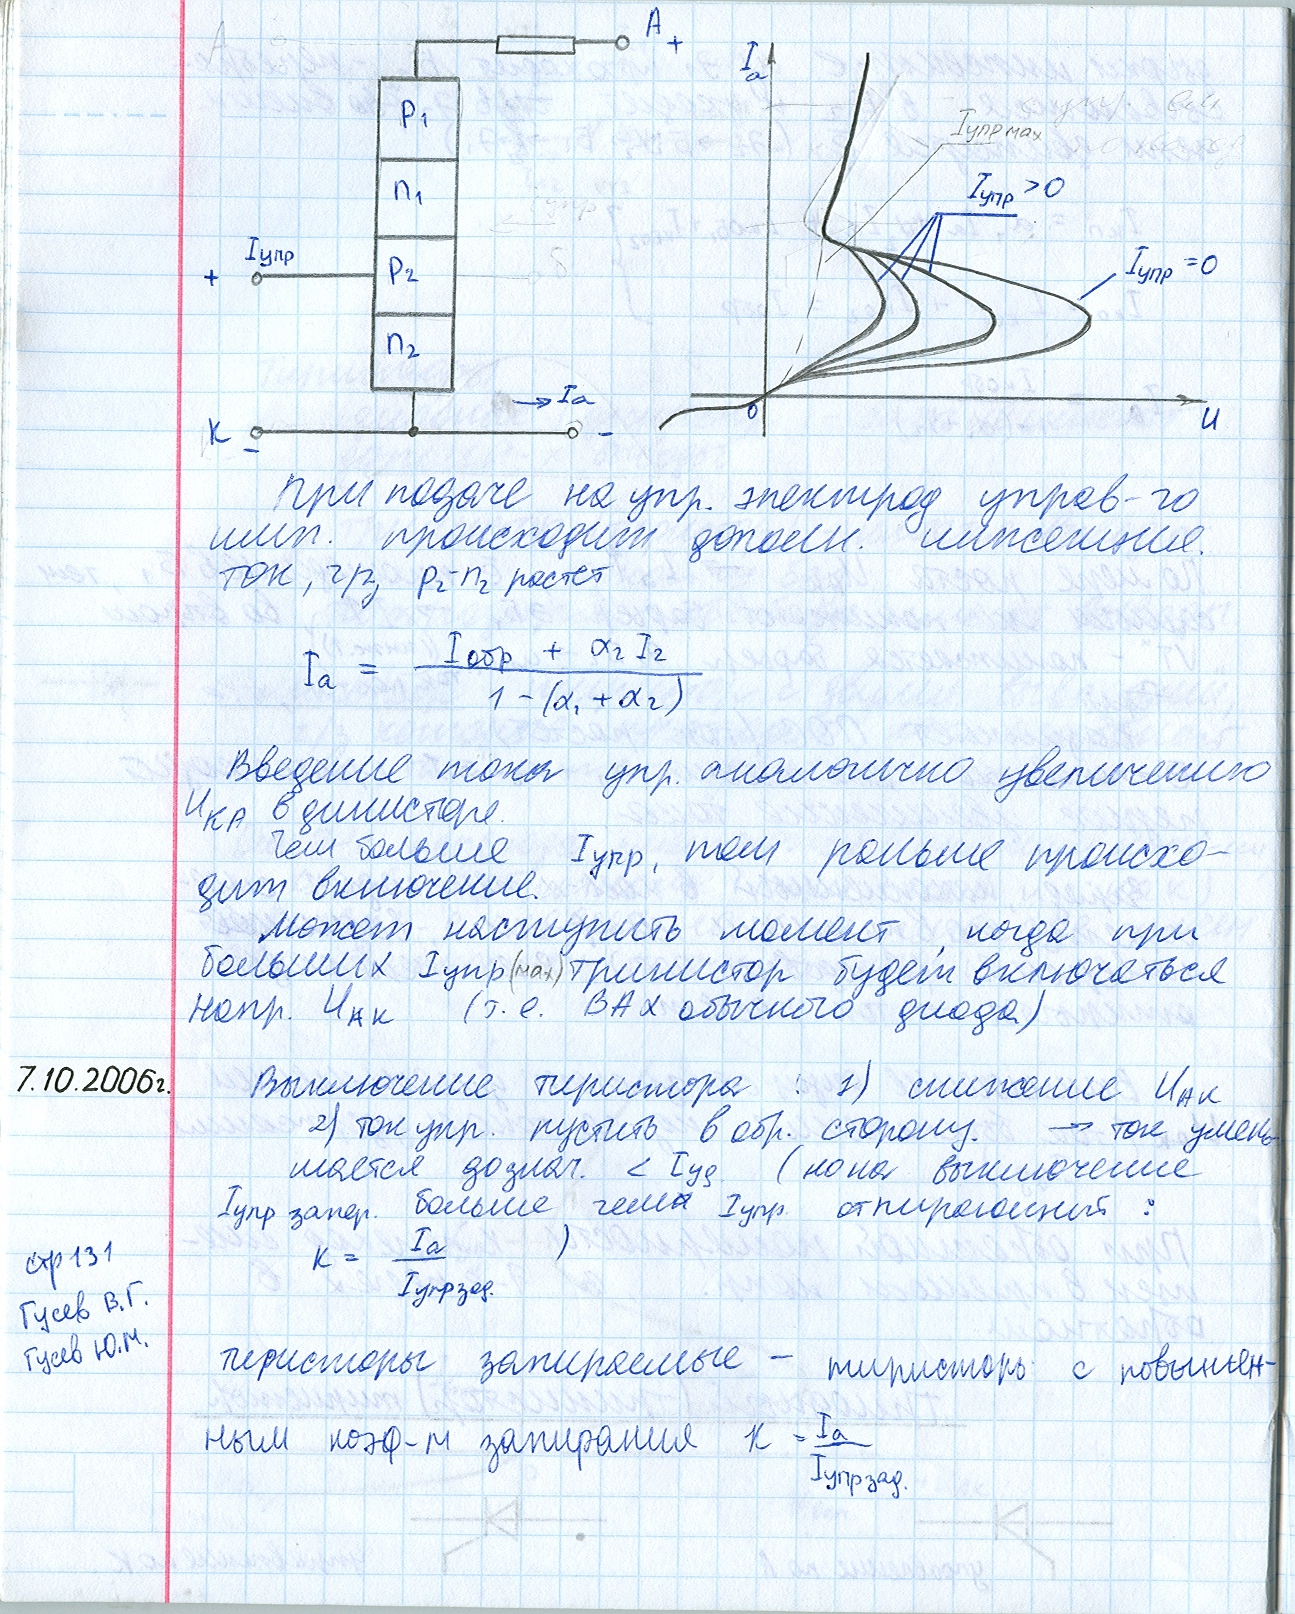 A
+
P₁
n₁
P₂
n₂
Iупр
+
→ Iа
К
-
-
Iа
Iупр max
Iупр > 0
Iупр = 0
0
U
При подаче на упр. электрод управ-го
имп. происходит дополн. инжекция.
ток, ч/з P₂-n₂ растет
Iа = (Iобр + α₂ I₂) / (1 - (α₁ + α₂))
Введение тока упр. аналогично увеличению
UКА в динисторе.
Чем больше Iупр, тем раньше происхо-
дит включение.
Может наступить момент, когда при
больших Iупр(max) тринистор будет включаться
напр. UАК (т.е. ВАХ обычного диода)
7.10.2006г.
Выключение тиристора : 1) снижение UАК
2) ток упр. пустить в обр. сторону. → ток умень-
шается до знач. < Iуд (но на выключение
Iупр запер. больше чем Iупр. отпирающий :
К = Iа / Iупр зад. )
стр 131
Гусев В.Г.
Гусев Ю.М.
Тиристоры запираемые – тиристоры с повышен-
ным коэф-м запирания К = Iа / Iупр зад.